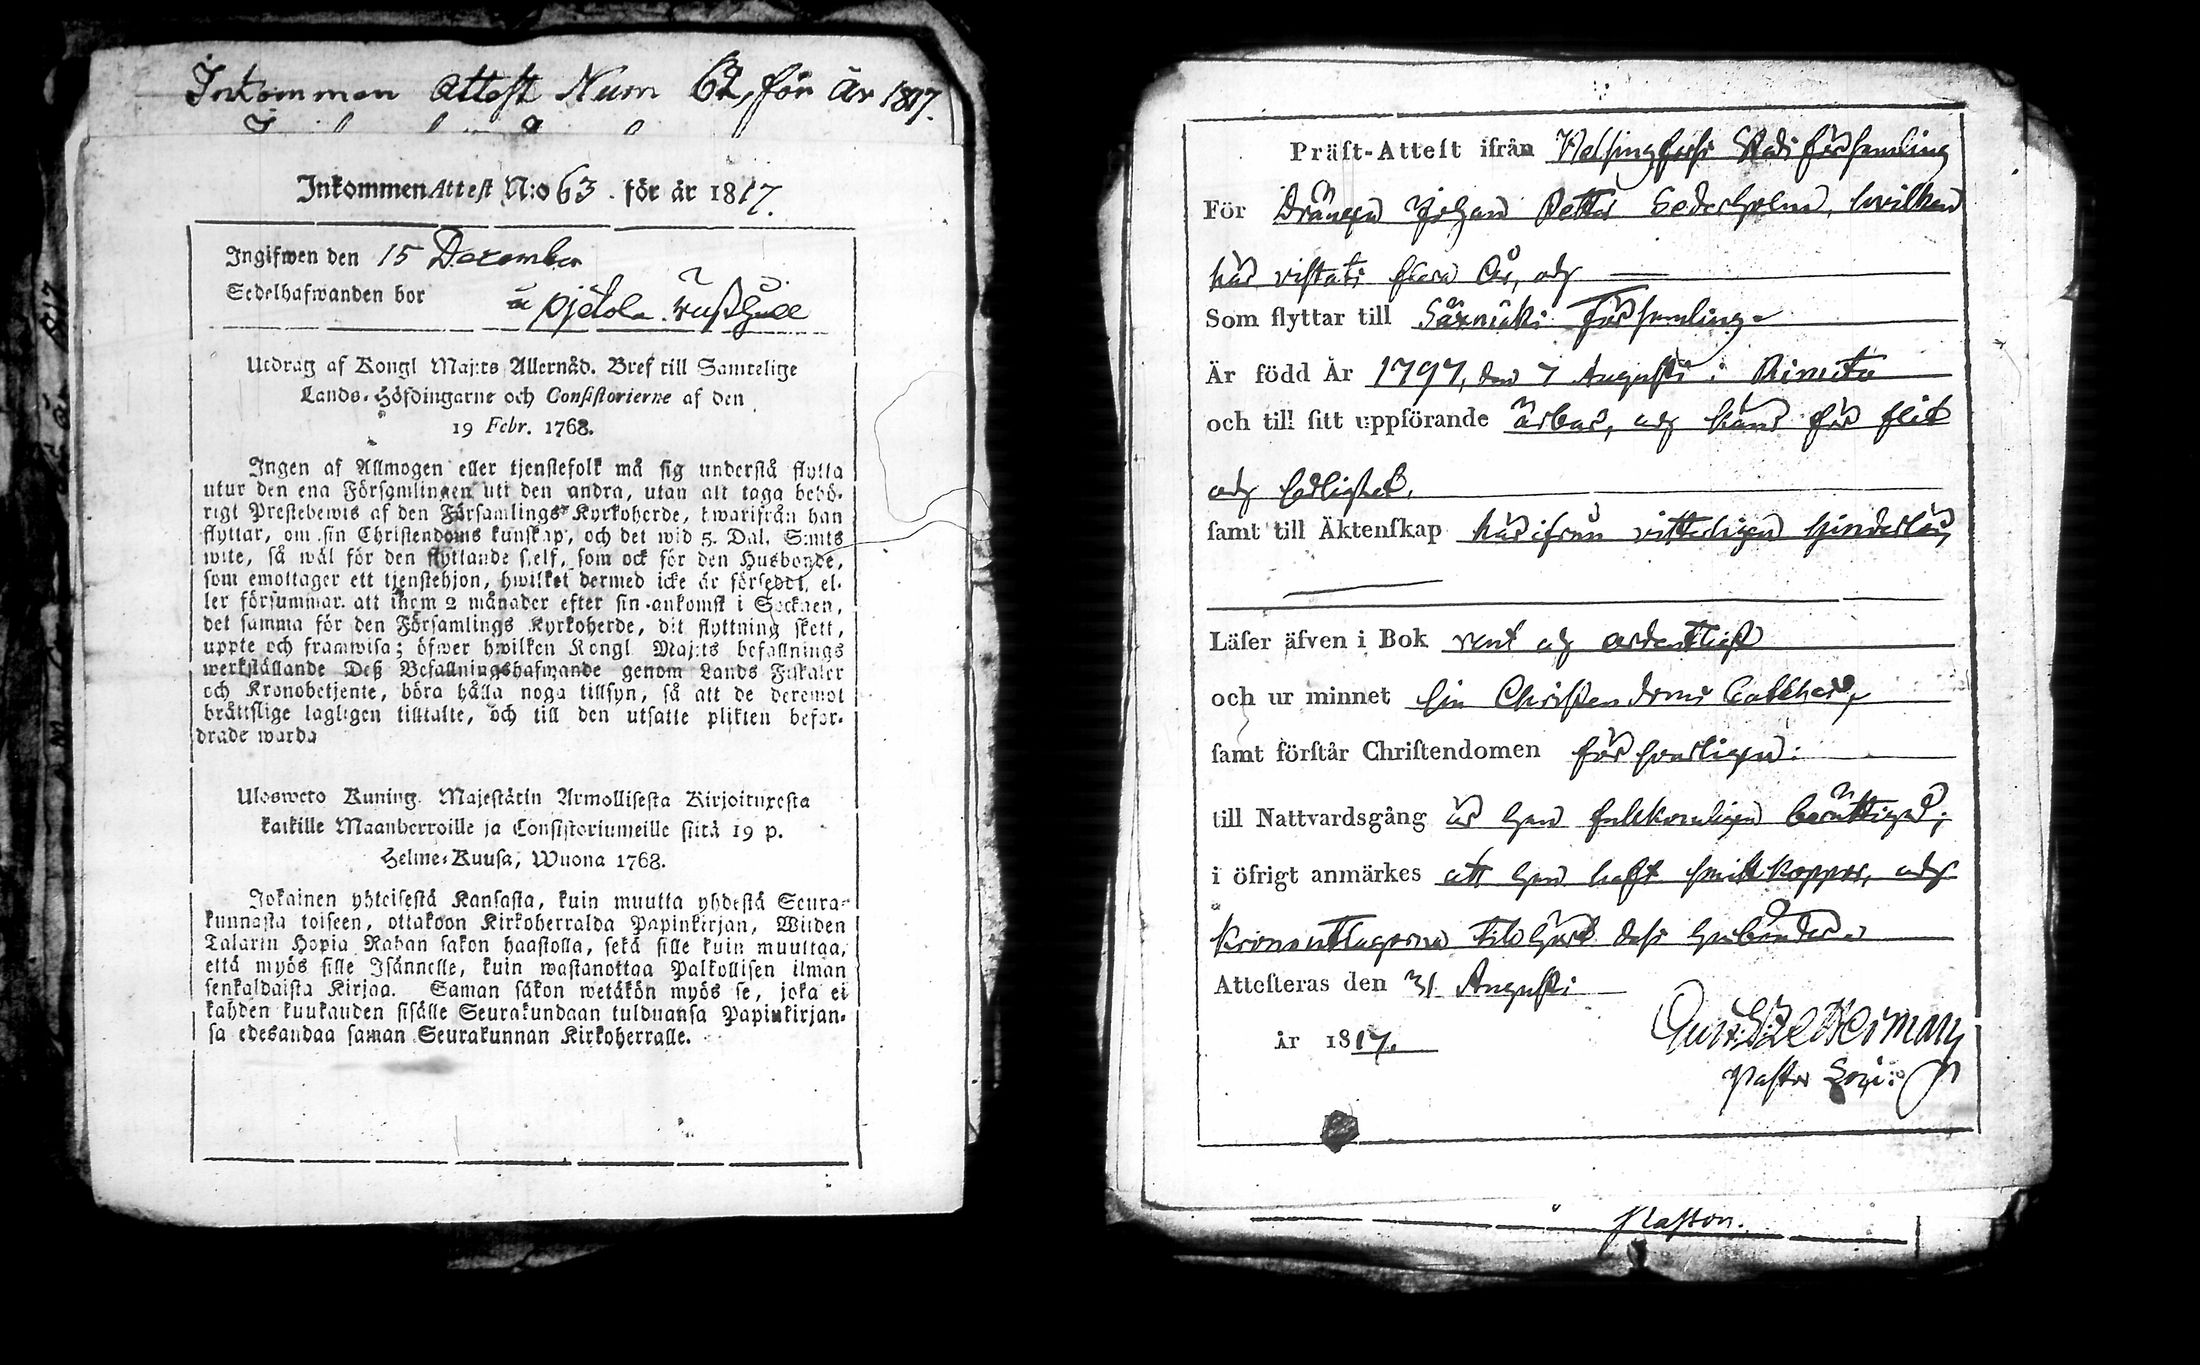 Inkommen Attest Num 62, för år 1817.
Inkommen Attest N:o 63. för år 1817.
Ingifwen den 15 December
Sedelhafwanden bor å Pjëtola Rusthåll
Utdrag af Kongl Maj:ts Allernåd. Bref till Samtelige
Lands-Höfdingarne och Consistorierne af den
19 Febr. 1768.
Ingen af Allmogen eller tjenstefolk må sig understå flytta
utur den ena Församlingen uti den andra, utan att taga behö-
rigt Prestebewis af den Församlings Kyrkoherde, hwarifrån han
flyttar, om sin Christendoms kunskap, och det wid 5. Dal. S:mts
wite, så wäl för den flyttande sielf, som ock för den Husbonde,
som emottager ett tjenstehjon, hwilket dermed icke är försedt, el-
ler försummar att inom 2 månader efter sin ankomst i Socknen,
det samma för den Församlings Kyrkoherde, dit flyttning skett,
uppte och framwisa; öfwer hwilken Kongl Maj:ts befallnings
werkställande Deß Befallningshafwande genom Lands Fiskaler
och Kronobetjente, böra hålla noga tillsyn, så att de deremot
bråttslige lagligen tilltalte, och till den utsatte plikten befor-
drade warda
Ulosweto Kuning. Majestätin Armollisesta Kirjoituxesta
kaikille Maanherroille ja Consistoriumeille siitä 19 p.
Helme-Kuusa, Wuona 1768.
Jokainen yhteisestä Kansasta, kuin muutta yhdestä Seura-
kunnasta toiseen, ottakoon Kirkoherralda Papinkirjan, Wiiden
Talarin Hopia Rahan sakon haastolla, sekä sille kuin muuttaa,
että myös sille Isännelle, kuin wastanottaa Palkollisen ilman
senkaldaista Kirjaa. Saman sakon wetäkön myös se, joka ei
kahden kuukauden sisälle Seurakundaan tulduansa Papinkirjan-
sa edesandaa saman Seurakunnan Kirkoherralle.
Präst-Attest ifrån Helsingfors Stads församling
För Drängen Johan Petter Cederholm, hvilken
här vistats flera År, och
Som flyttar till Säxmäki Församling.
Är född År 1797, den 7 Augusti i Rimito
och till sitt uppförande ärbar, och känd för flit
och sedlighet.
samt till Äktenskap härifrån vitterligen hinderlös,
Läser äfven i Bok rent och ordentligt
och ur minnet sin Christendoms Catches,
samt förstår Christendomen försvarligen:
till Nattvardsgång är han fullkomligen berättigad;
i öfrigt anmärkes att han haft smittkoppor, och
Kronoutlagorna
Attesteras den 31 Augusti
år 1817.
Pastor